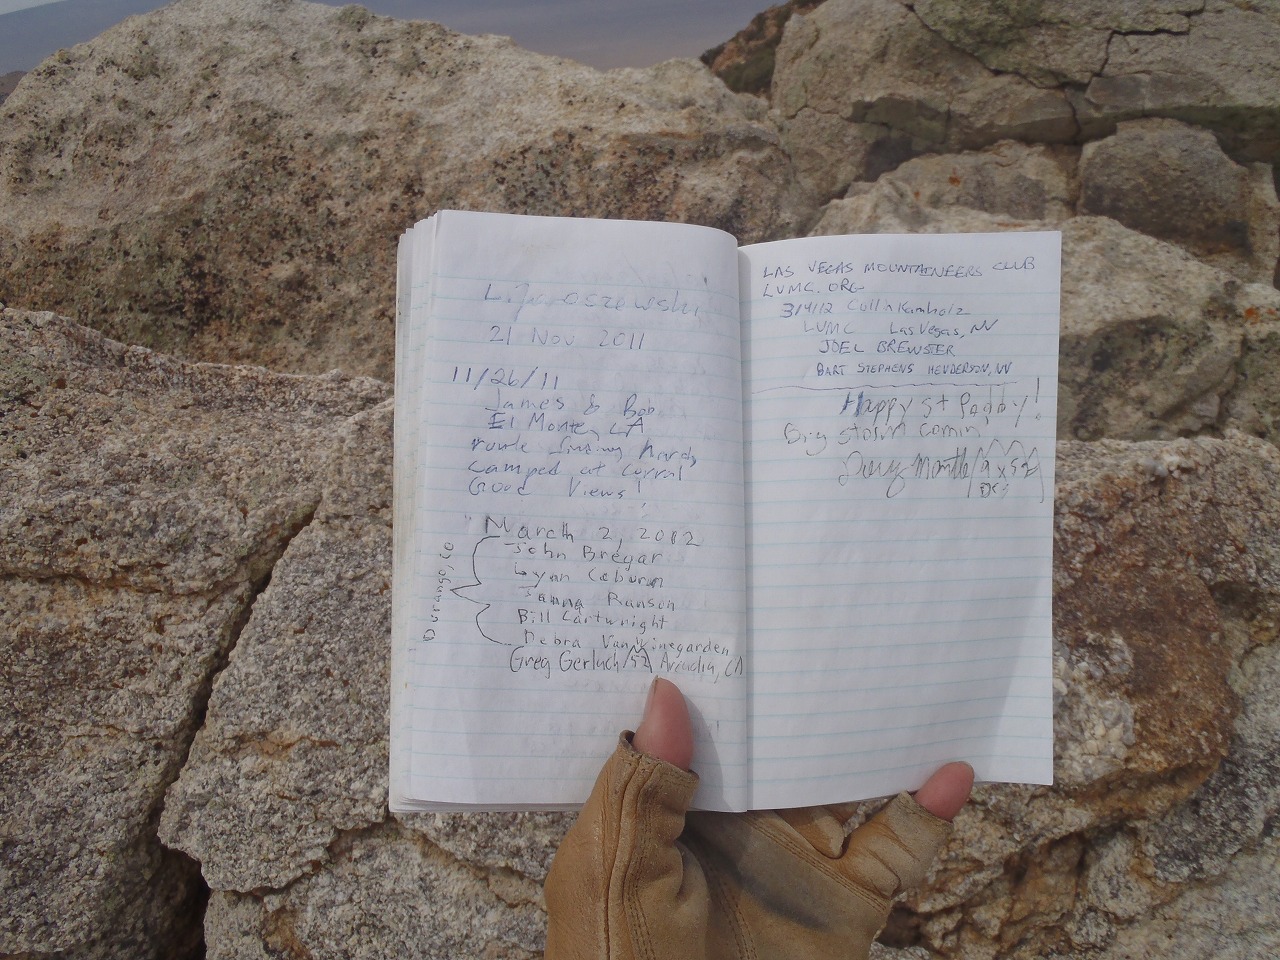 L. Jaroszewski
21 Nov 2011
11/26/11
James & Bob
El Monte, CA
route finding hard,
camped at Corral
Good Views!
March 2, 2012
John Bregar
Lynn Coburn
Janna Ranson
Bill Cartwright
Debra VanWinegarden
Durango, CO
Greg Gerlach/52 Arcadia, CA
LAS VEGAS MOUNTAINEERS CLUB
LVMC.ORG
3/4/12 Collin Kamholz
LVMC Las Vegas, NV
JOEL BREWSTER
BART STEPHENS HENDERSON, NV
Happy St Paddy!
Big storm comin,
Doug Mantle